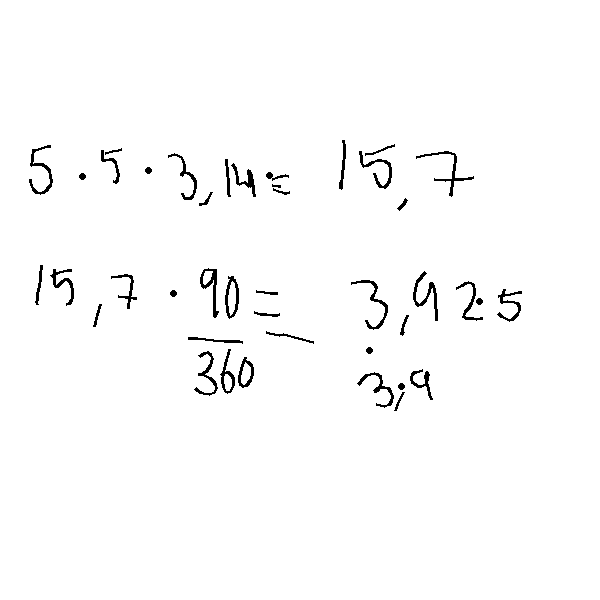 5 · 5 · 3,14 = 15,7
15,7 · 90/360 = 3,925
3,9